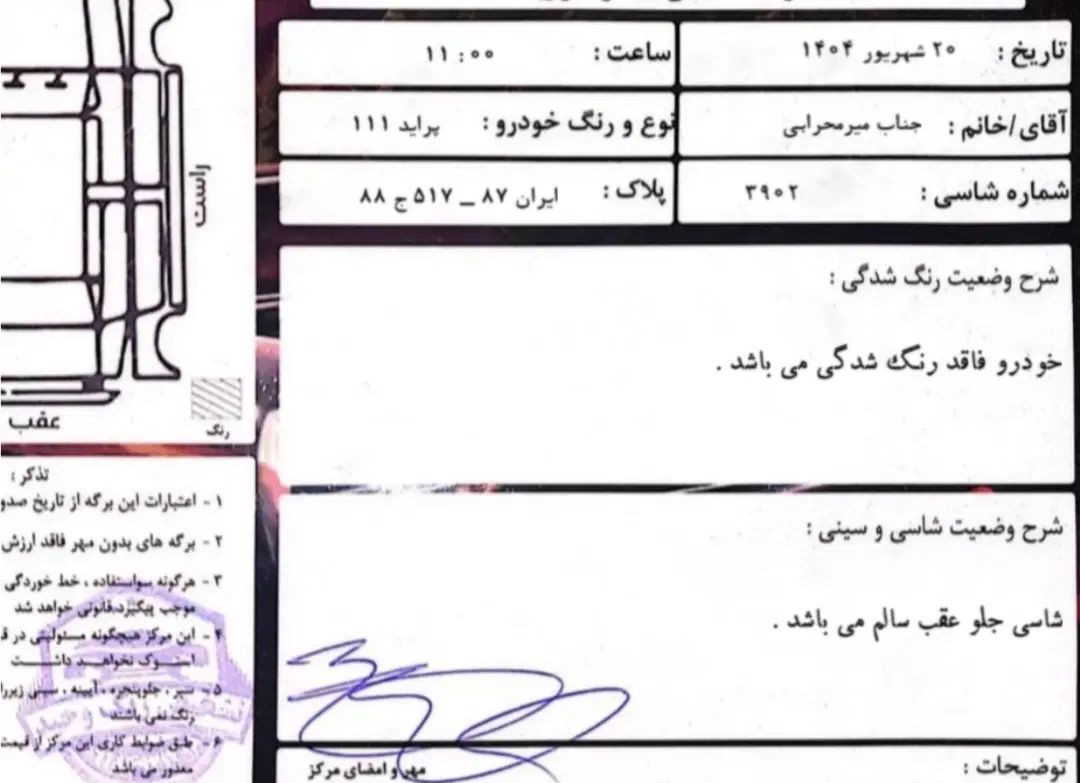 تاریخ : ۲۰ شهریور ۱۴۰۴
ساعت : ۱۱ : ۰۰
آقای/خانم : جناب میرمحرابی
نوع و رنگ خودرو : پراید ۱۱۱
شماره شاسی : ۳۹۰۲
پلاک : ایران ۸۷ ــ ۵۱۷ ج ۸۸
شرح وضعیت رنگ شدگی :
خودرو فاقد رنگ شدگی می باشد .
شرح وضعیت شاسی و سینی :
شاسی جلو عقب سالم می باشد .
توضیحات :
مهر و امضای مرکز
راست
عقب
رنگ
تذکر :
۱ - اعتبارات این برگه از تاریخ
۲ - برگه های بدون مهر فاقد ارزش
۳ - هرگونه سواستفاده ، خط خوردگی
موجب پیگیرد قانونی خواهد شد
۴ - این مرکز هیچگونه مسئولیتی در
استوک نخواهد داشت
۵ - سپر ، جلوپنجره ، آیینه ، سینی
رنگ نمی باشند
۶ - طبق ضوابط کاری این مرکز از قیمت
معذور می باشد